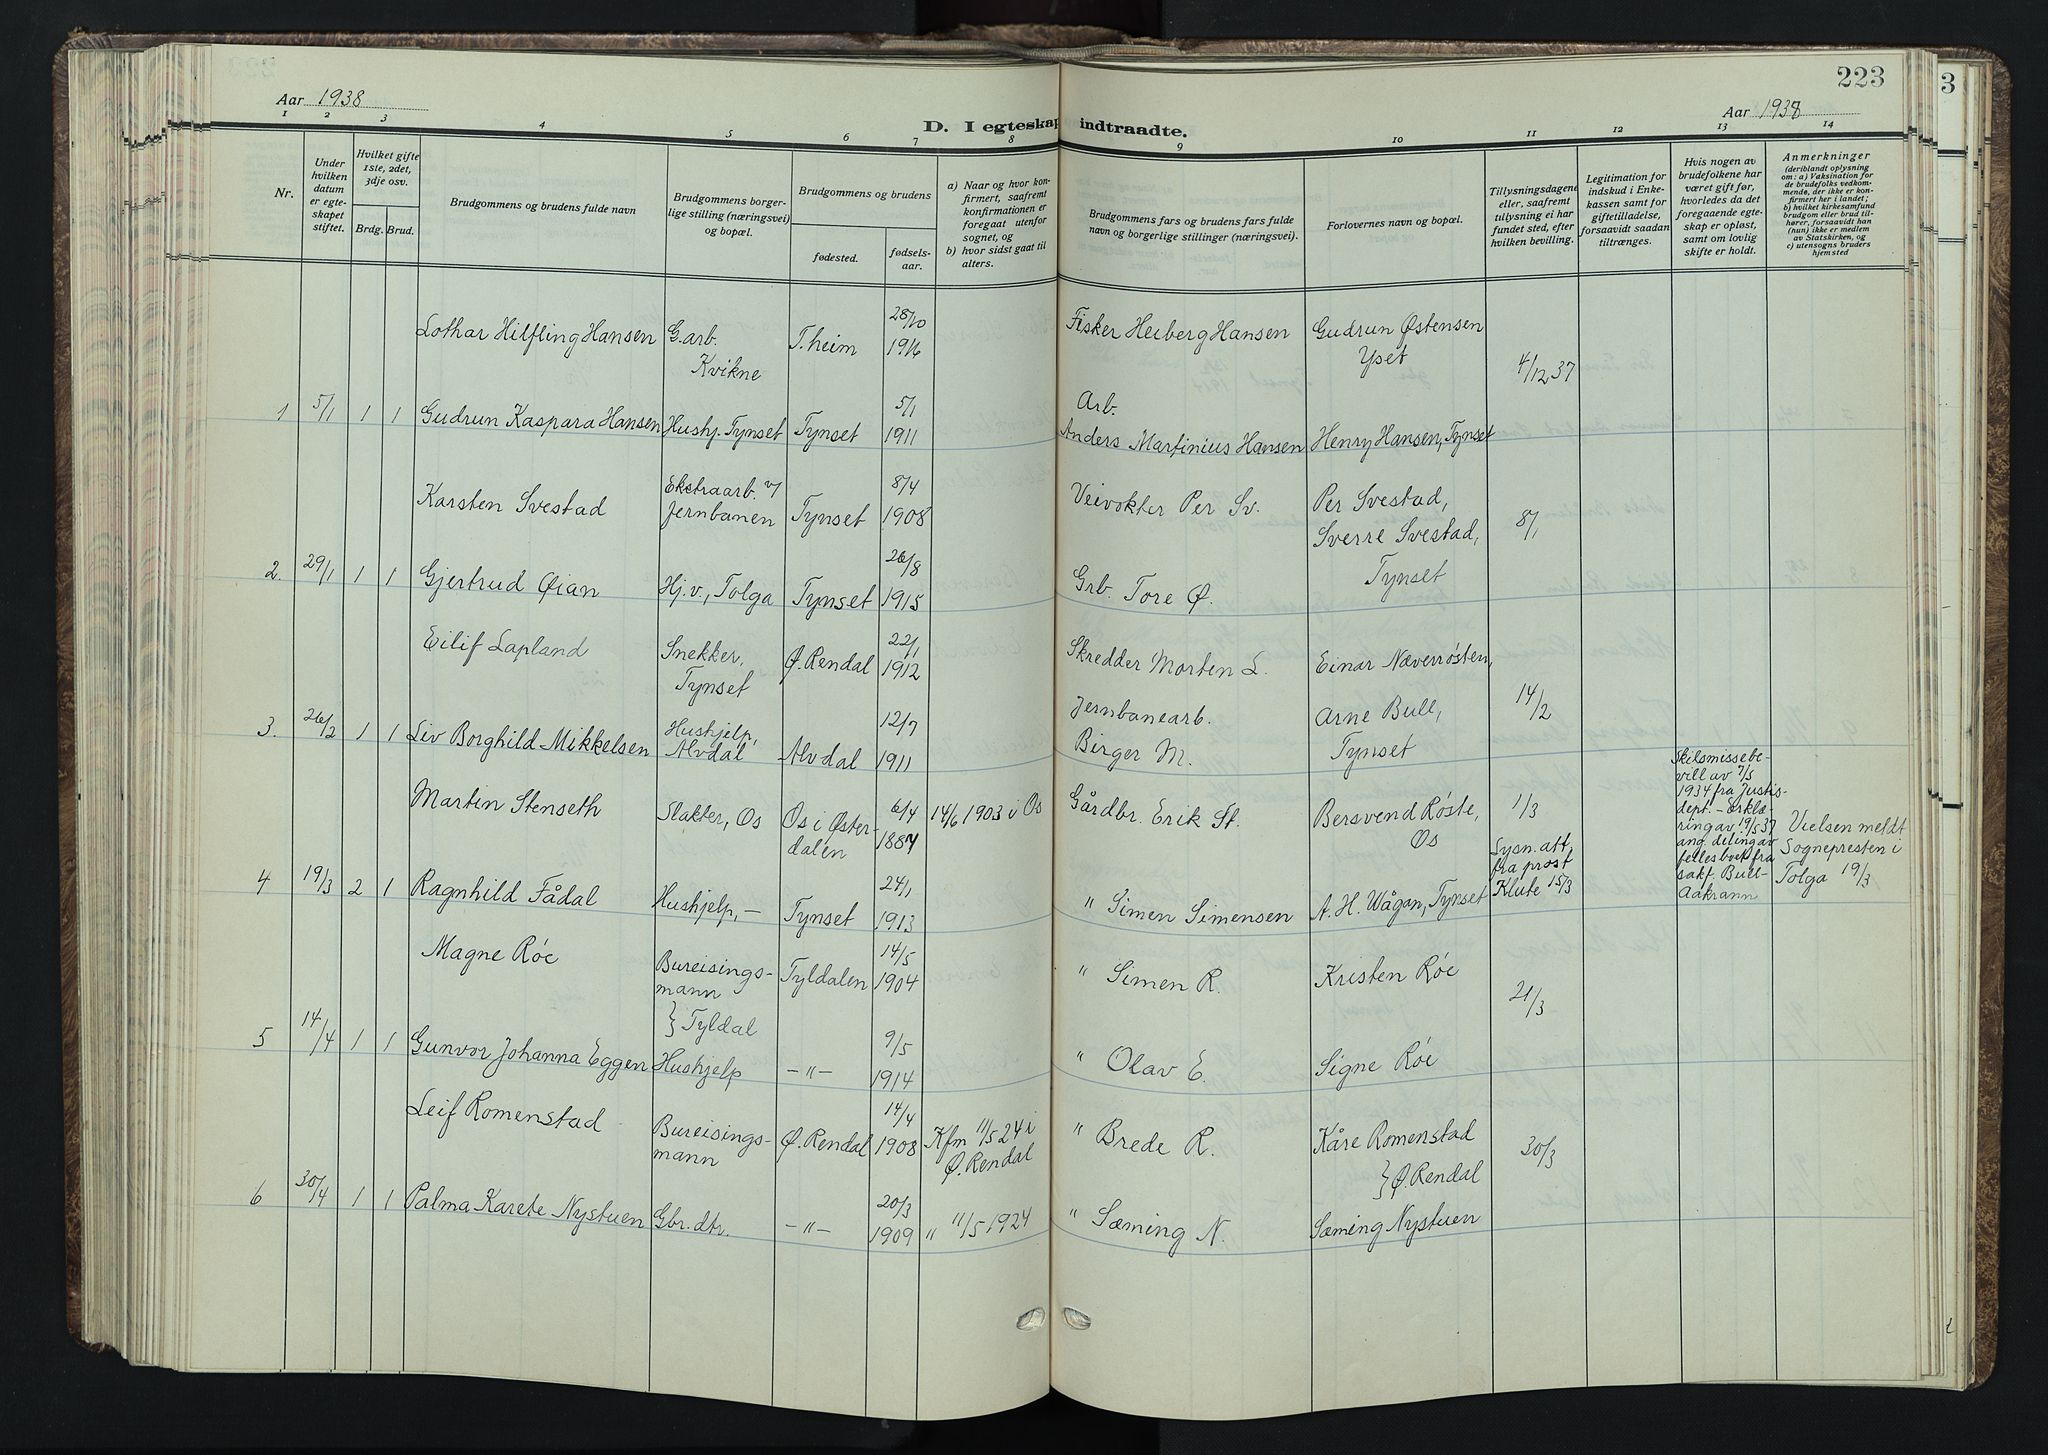 223
Aar 1938
Aar 1938
D. I egteskap indtraadte.
1 2 3 4 5 6 7 8 9 10 11 12 13 14
Nr.
Under hvilken datum er egteskapet stiftet.
Hvilket gifte 1ste, 2det, 3dje osv.
Brdg. Brud.
Brudgommens og brudens fulde navn
Brudgommens borgerlige stilling (næringsvei) og bopæl.
Brudgommens og brudens
fødested.
fødselsaar.
a) Naar og hvor konfirmert, saafremt konfirmationen er foregaat utenfor sognet, og
b) hvor sidst gaat til alters.
Brudgommens fars og brudens fars fulde navn og borgerlige stillinger (næringsvei).
Forlovernes navn og bopæl.
Tillysningsdagene eller, saafremt tillysning ei har fundet sted, efter hvilken bevilling.
Legitimation for indskud i Enkekassen samt for giftetilladelse, forsaavidt saadan tiltrænges.
Hvis nogen av brudefolkene har været gift før, hvorledes da det foregaaende egteskap er opløst, samt om lovlig skifte er holdt.
Anmerkninger
(deriblandt oplysning om: a) Vaksination for de brudefolks vedkommende, der ikke er konfirmert her i landet; b) hvilket kirkesamfund brudgom eller brud tilhører, forsaavidt han (hun) ikke er medlem av Statskirken, og c) utensogns bruders hjemsted
Lothar Hilfling Hansen G.arb. Kvikne T.heim 28/10 1916 Fisker Heiberg Hansen Gudrun Østensen Yset 4/12 37
1 5/1 1 1 Gudrun Kaspara Hansen Hushj. Tynset Tynset 5/1 1911 Arb. Anders Martinius Hansen Henry Hansen, Tynset
Karsten Svestad Ekstraarb. v/ Jernbanen Tynset 8/4 1908 Veivokter Per Sv. Per Svestad, Sverre Svestad, Tynset 8/1
2. 29/1 1 1 Gjertrud Øian Hj.v., Tolga Tynset 26/8 1915 Grb. Tore Ø.
Eilif Lapland Snekker, Tynset Ø. Rendal 22/1 1912 Skredder Morten L. Einar Næverrøsten, Arne Bull, Tynset 14/2
3. 26/2 1 1 Liv Borghild Mikkelsen Hushjelp, Alvdal Alvdal 12/7 1911 Jernbanearb. Birger M.
Martin Stenseth Slakter, Os Os i Østerdalen 6/4 1887 14/6 1903 i Os Gårdbr. Erik St. Bersvend Røste, Os 1/3 Lysn. att. fra prost Klute 15/3
Skilsmissebevill av 7/5 1934 fra Justisdept. - Erklæring av 19/5 37 ang. deling av fellesboet fra sakf. Bull-Aakrann
Vielsen meldt Sognepresten i Tolga 19/3
4 19/3 2 1 Ragnhild Fådal Hushjelp, — Tynset 24/1 1913 " Simen Simensen A. H. Wågan, Tynset
Magne Røe Bureisingsmann } Tyldal Tyldalen 14/5 1904 " Simen R. Kristen Røe 21/3
5 14/4 1 1 Gunvor Johanna Eggen Hushjelp —"— 9/5 1914 " Olav E. Signe Røe
Leif Romenstad Bureisingsmann Ø. Rendal 14/4 1908 Kfm 11/5 24 i Ø. Rendal " Brede R. Kåre Romenstad } Ø. Rendal 30/3
6 30/4 1 1 Palma Karete Nystuen Gbr. dtr. —"— 20/3 1909 " 11/5 1924 " Sæming N. Sæming Nystuen